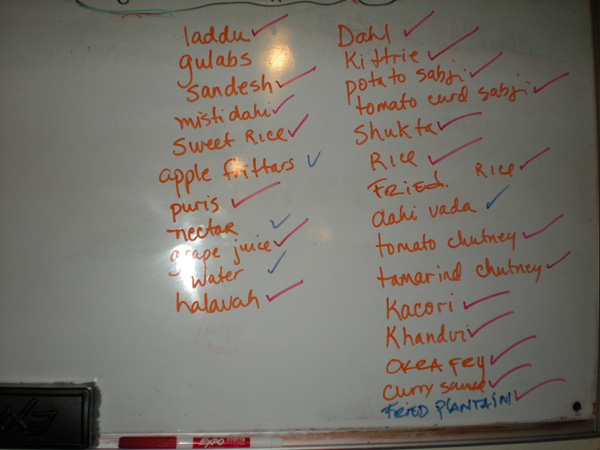 laddu
gulabs
sandesh
mistidahi
sweet Rice
apple frittars
puris
nectar
grape juice
water
halavah
Dahl
Kittrie
potato sabji
tomato curd sabji
Shukta
Rice
FRied Rice
dahi vada
tomato chutney
tamarind chutney
Kacori
Khandvi
OKRA FRy
Curry sauce
FRIED PLANTAIN
EXPO